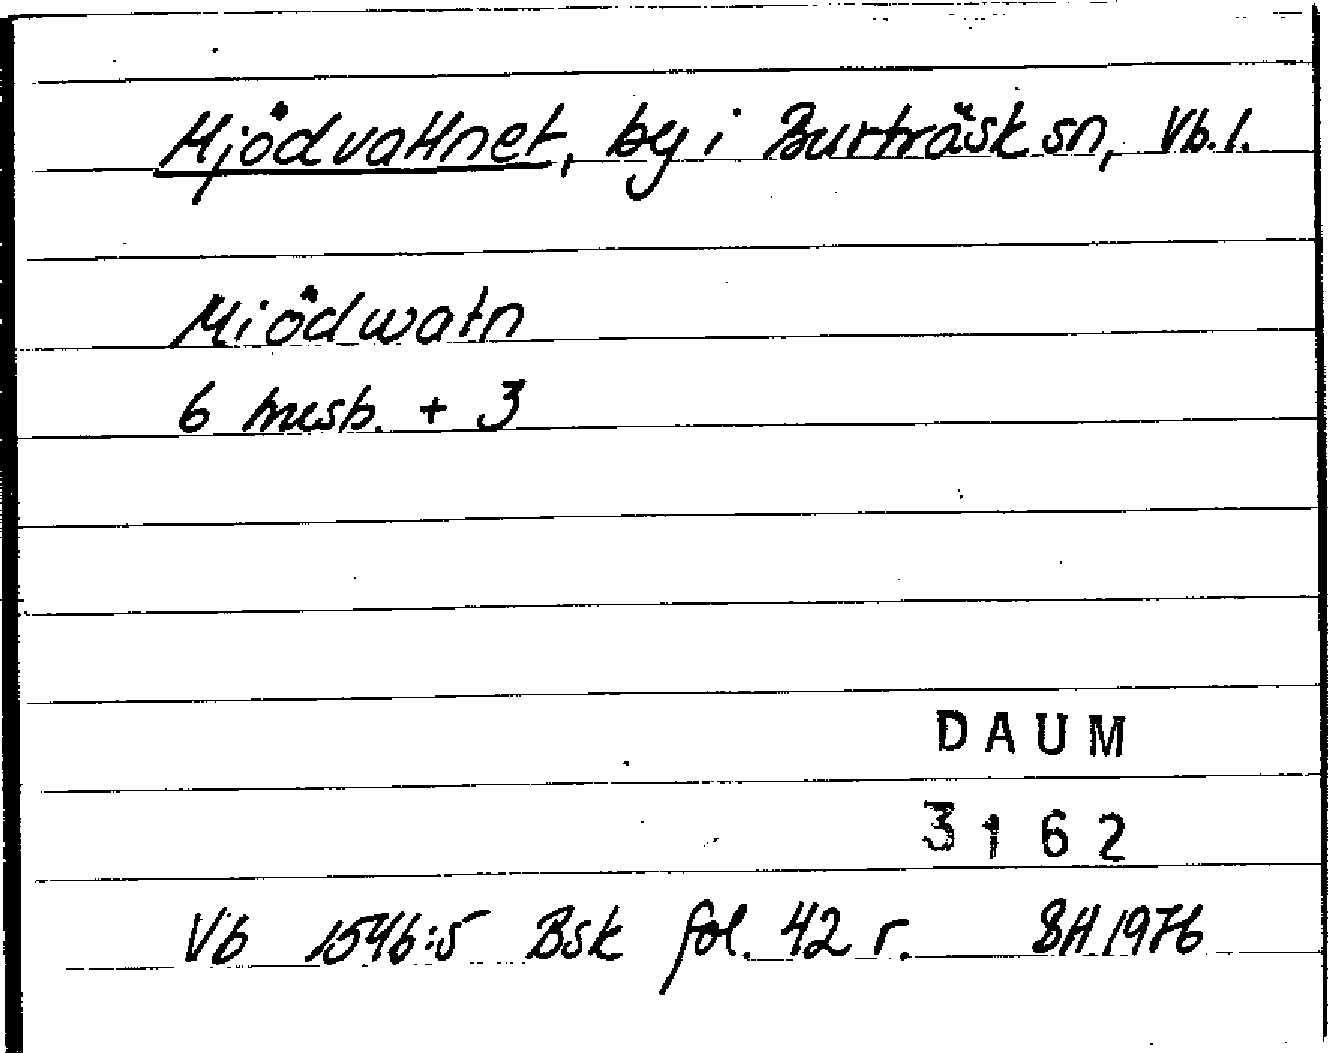 Mjödvattnet, by i Burträsk sn, Vb. l.
Miödwatn
6 mesb. + 3
DAUM
3162
Vb 1546:5 Bsk fol. 42 r. SH 1976